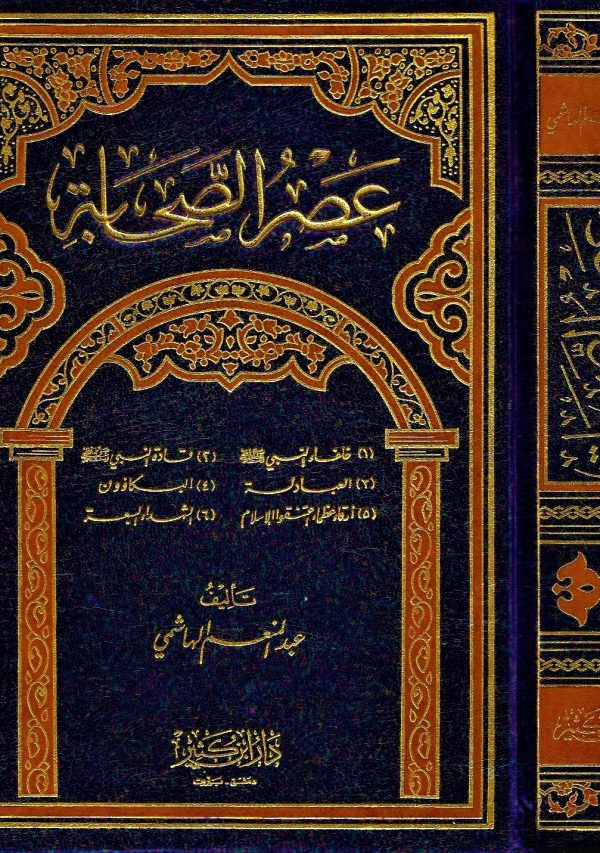 عَصْرُ الصَّحَابَةِ
(١) خلفاء النبي ﷺ (٢) قادة النبي ﷺ
(٣) العبادلة (٤) البكاؤون
(٥) أرقاء عظماء اعتنقوا الإسلام (٦) الشهداء السبعة
تأليفُ
عبد المنعم الهاشمي
دار ابن كثير
دمشق - بيروت
عصر الصحابة